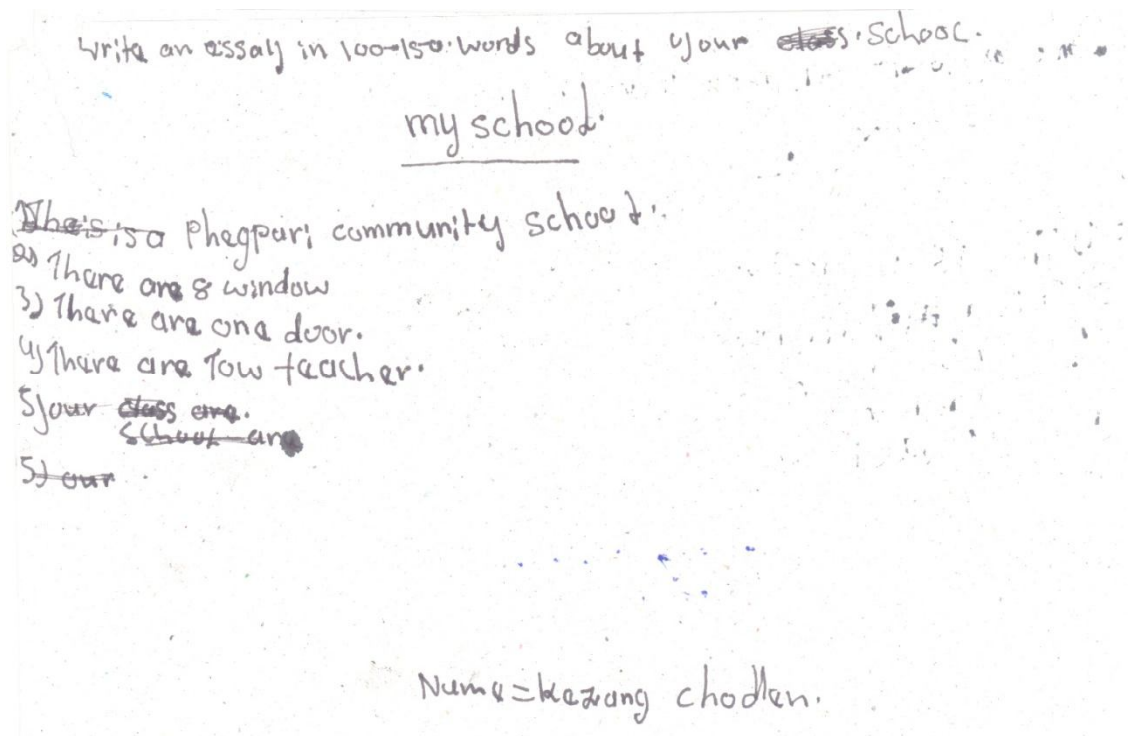 write an essay in 100-150 words about your class. school.
my school.
Theis is a Phegpari community school.
2) There are 8 window
3) There are one door.
4) There are Tow teacher.
5) our class are.
school are
5) our.
Name = kezang choden.